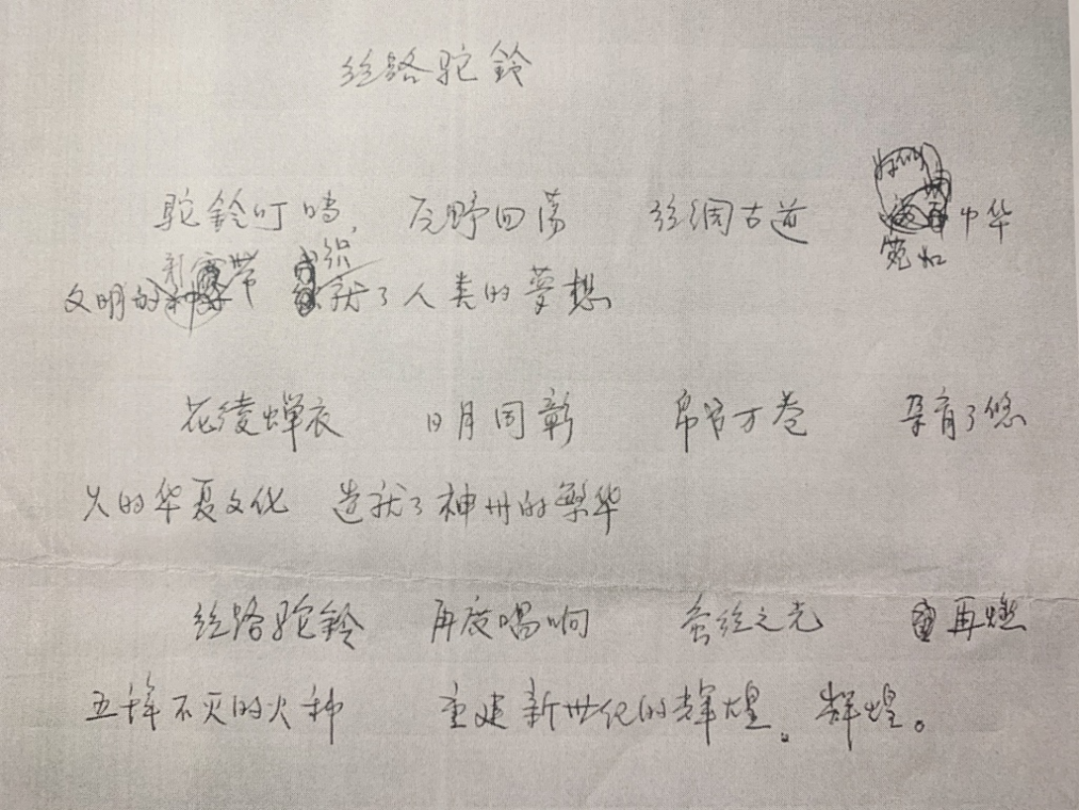 丝路驼鈴
驼鈴叮噹, 原野回荡 丝绸古道 宛如中华
文明的彩带 织就了人类的夢想
花绫蝉衣 日月同彰 帛书万卷 孕育了悠
久的华夏文化 造就了神州的繁华
丝路驼鈴 再度唱响 蚕丝之光 再燃
五千年不灭的火种 重建新世纪的辉煌。辉煌。